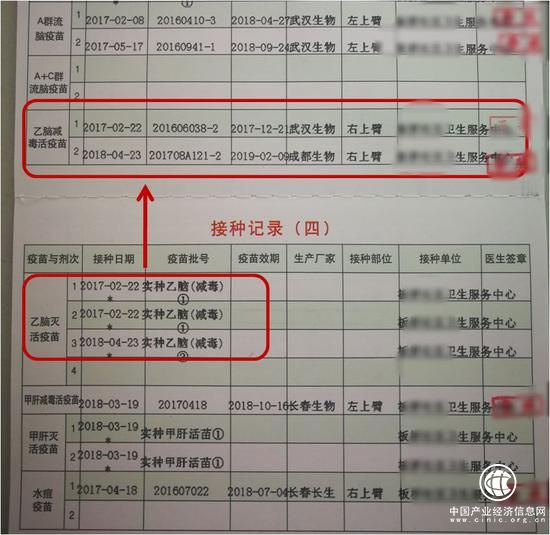 A群流脑疫苗 1 2017-02-08 20160410-3 2018-04-27 武汉生物 左上臂 卫生服务
2 2017-05-17 20160941-1 2018-09-24 武汉生物 左上臂 卫生服务中心
A+C群流脑疫苗 1
2
乙脑减毒活疫苗 1 2017-02-22 201606038-2 2017-12-21 武汉生物 右上臂 卫生服务中
2 2018-04-23 201708A121-2 2019-02-09 成都生物 右上臂 卫生服务中心
接种记录（四）
疫苗与剂次 接种日期 疫苗批号 疫苗效期 生产厂家 接种部位 接种单位 医生签章
乙脑灭活疫苗 1 2017-02-22 * 实种乙脑(减毒)① 板 卫生服务中心
2 2017-02-22 * 实种乙脑(减毒)① 板 卫生服务中心
3 2018-04-23 * 实种乙脑(减毒)② 板 卫生服务中心
4
甲肝减毒活疫苗 2018-03-19 20170418 2018-10-16 长春生物 左上臂 卫生服务
甲肝灭活疫苗 1 2018-03-19 * 实种甲肝活苗① 板 卫生服务中心
2 2018-03-19 * 实种甲肝活苗① 板 卫生服务中心
水痘疫苗 1 2017-04-18 201607022 2018-07-04 长春长生 右上臂 板 卫生服务中心
2
中国产业经济信息网
www.cinic.org.cn